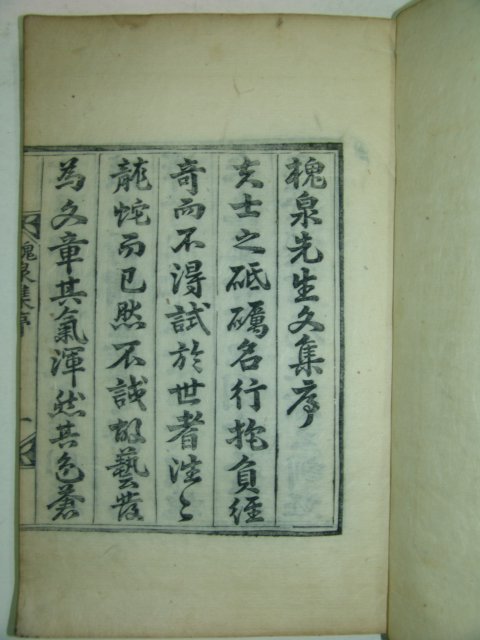 槐泉先生文集序
夫士之砥礪名行抱負經
奇而不得試於世者往〻
龍蛇而已然不誠故藝發
為文章其氣渾然其色蒼
槐泉集序 一